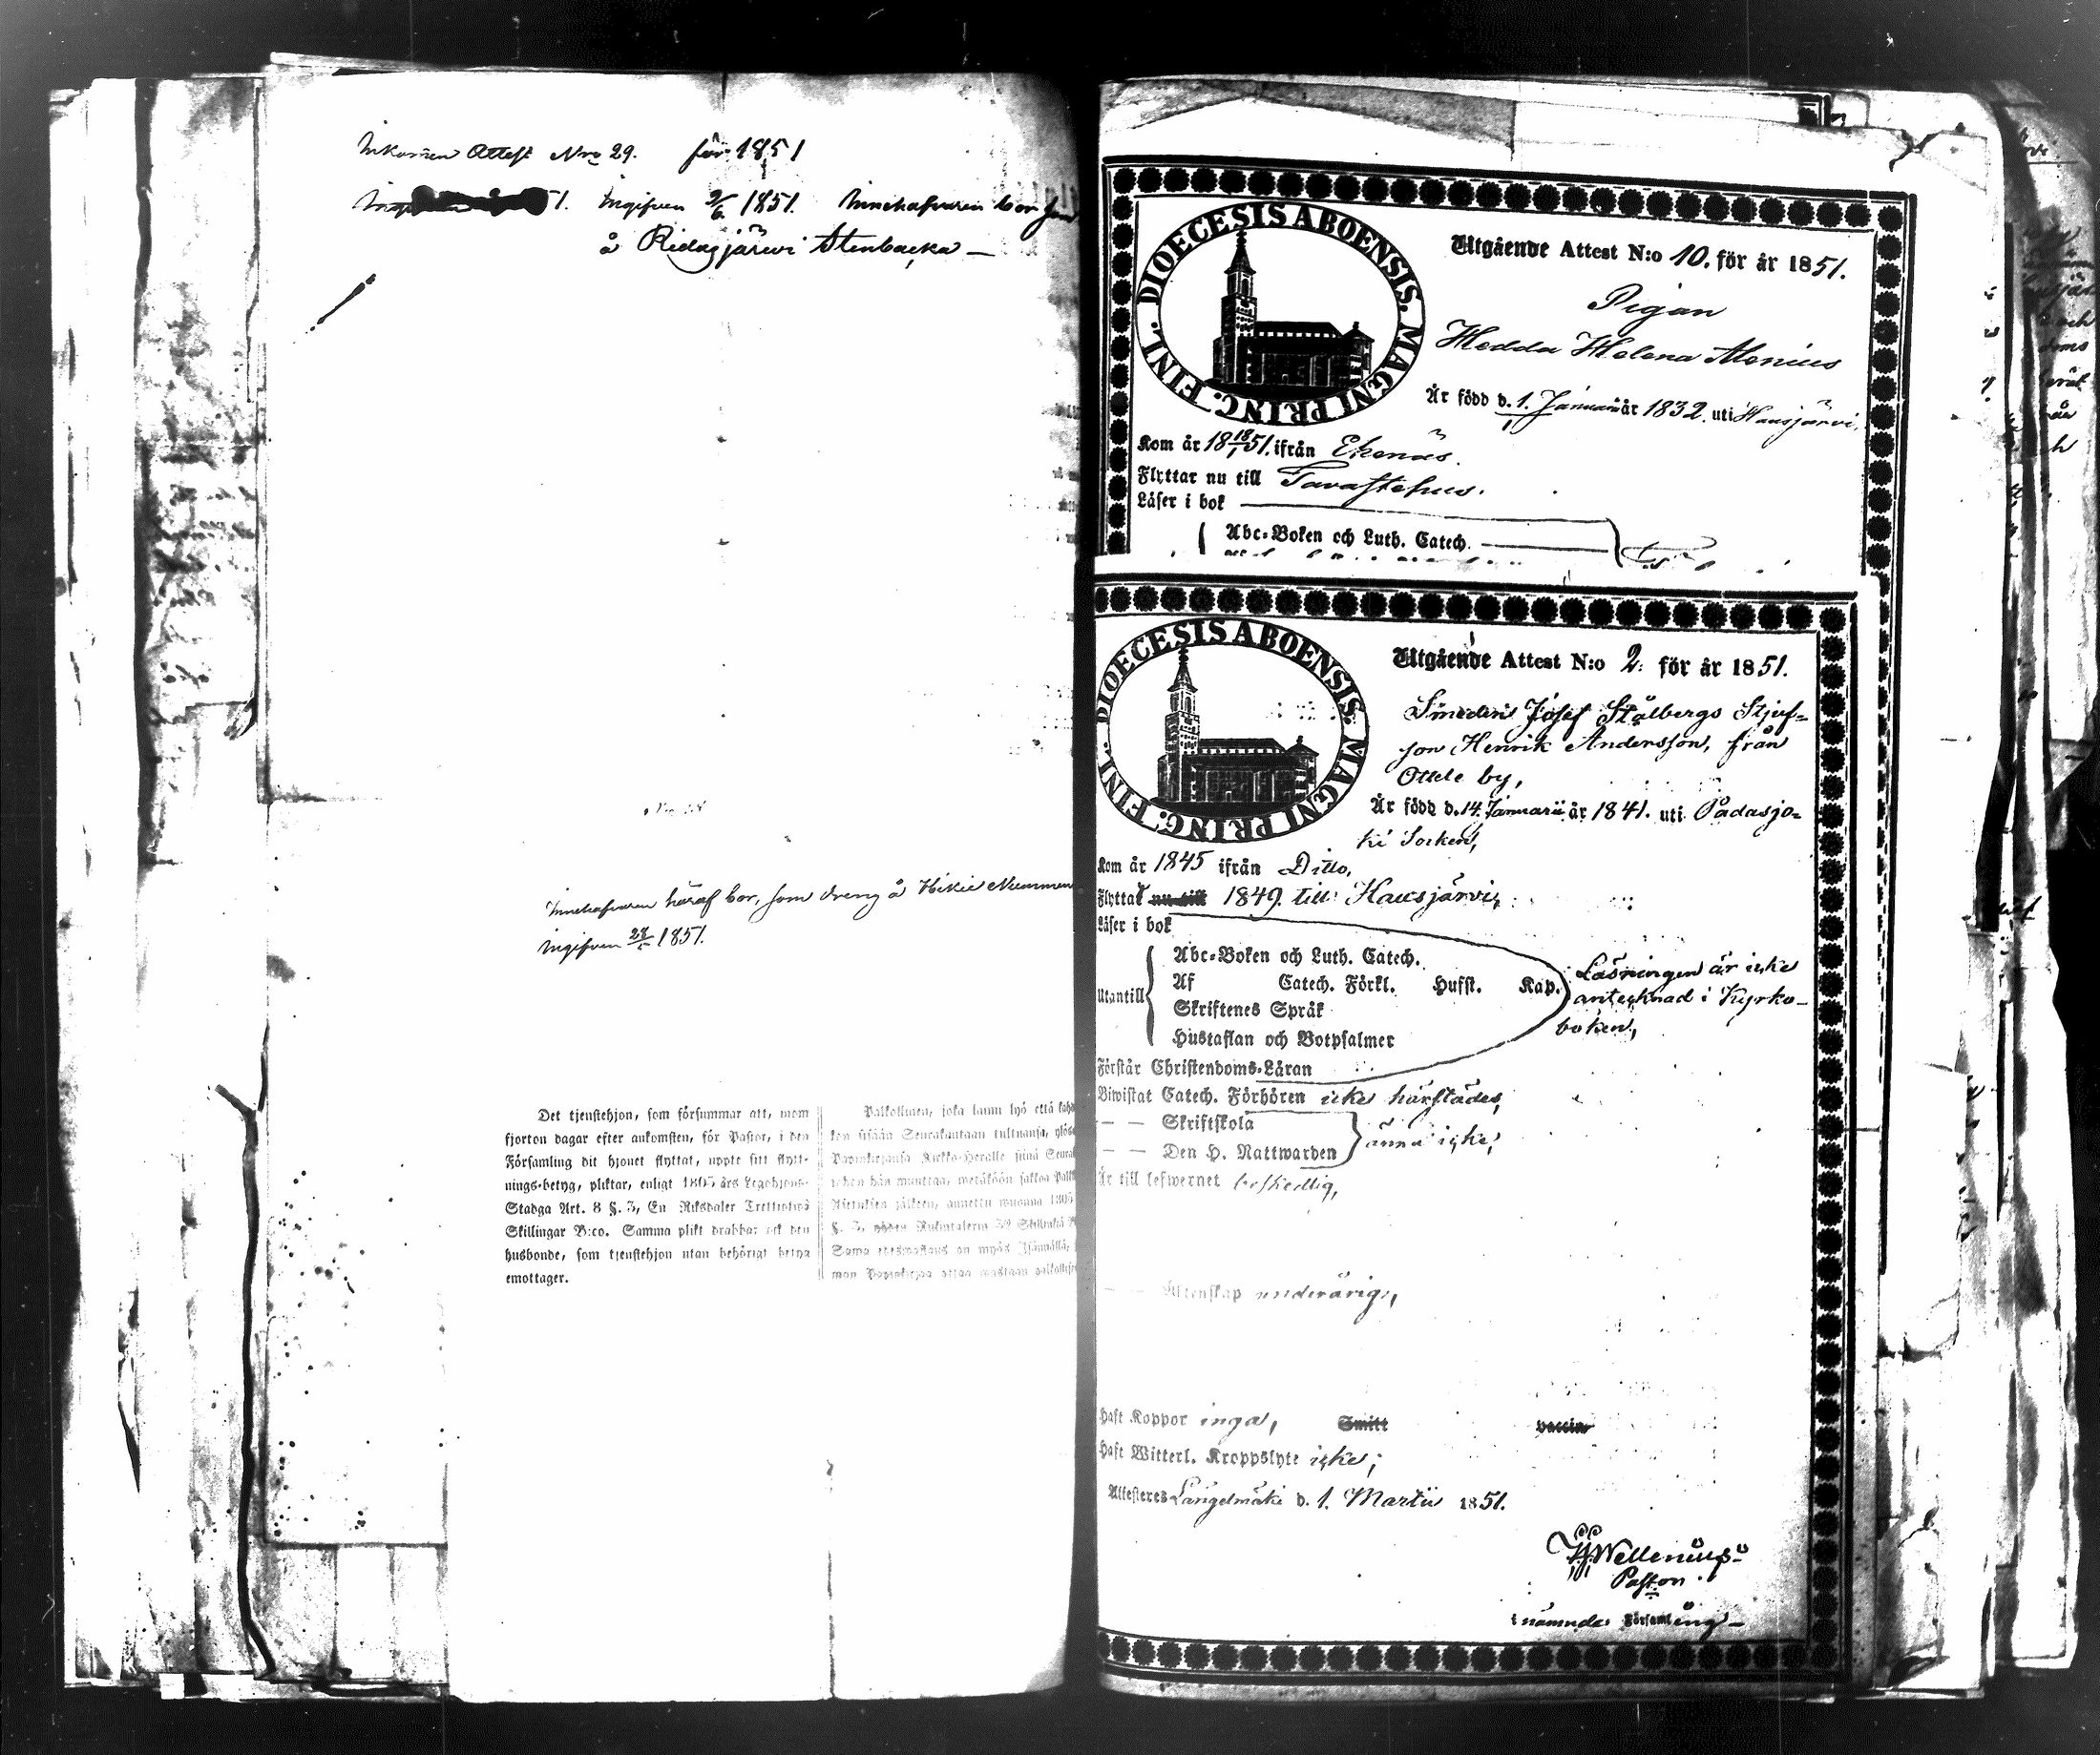 Inkommen Attest Nro 29. för 1851
51. Ingifven 9/6 1851. Innehafvaren bor som
å Ridasjärwi Stenbacka —
Innehafvaren häraf bor, som dreng å Hikie Nummen
Ingifven 28/5 1851.
Det tjenstehjon, som försummar att, inom
fjorton dagar efter ankomsten, för Pastor, i den
Församling dit hjonet flyttat, uppte sitt flytt-
nings-betyg, pliktar, enligt 1805 års Legohjons-
Stadga Art. 8 §. 3, En Riksdaler Trettiotwå
Skillingar B:co. Samma plikt drabbar ock den
husbonde, som tjenstehjon utan behörigt betyg
emottager.
Palkollinen, joka laimin lyö että
sisään Seurakuntaan tultuansa,
Papinkirjansa Kirkko-Herralle siinä
johon hän muuttaa, wetäköön sakkoa
jälkeen, annettu wuonna 1805
§. 3, yhden Riksitalerin 32 Skillinkiä
Sama edeswastaus on myös Isännällä,
Papinkirjaa ottaa wastaan
DIOECESIS ABOENSIS. MAGNI PRINC. FINL.
Utgående Attest N:o 10. för år 1851.
Pigan
Hedda Helena Alenius
Är född d. 1. Januarii år 1832. uti Hausjärvi.
Kom år 18 18/1 51. ifrån Ekenäs.
Flyttar nu till Tavastehus.
Läser i bok
Abc-Boken och Luth. Catech.
DIOECESIS ABOENSIS. MAGNI PRINC. FINL.
Utgående Attest N:o 2. för år 1851.
Smeden Josef Stålbergs Stjuf-
son Henrik Andersson, från
by,
Är född d. 14. Januarii år 1841. uti Padasjo-
ki Socken,
Kom år 1845 ifrån Ditto,
Flyttat nu till 1849. till Hausjärvi,
Läser i bok
Utantill
Abc-Boken och Luth. Catech.
Af Catech. Förkl. Husst. Kap.
Skriftenes Språk
Hustaflan och Botpsalmer
Läsningen är icke
antecknad i Kyrko-
boken,
Förstår Christendoms-Läran
Biwistat Catech. Förhören icke härstädes,
— — Skriftskola
— — Den H. Nattwarden
ännu icke,
Är till lefwernet beskedlig,
— — Äktenskap underårig,
Haft Koppor inga, Smitt vaccin
Haft Witterl. Kroppslyte icke;
Attesteres Längelmäki d. 1. Martii 1851.
Wellenius
Pastor
i nämnde Församling —